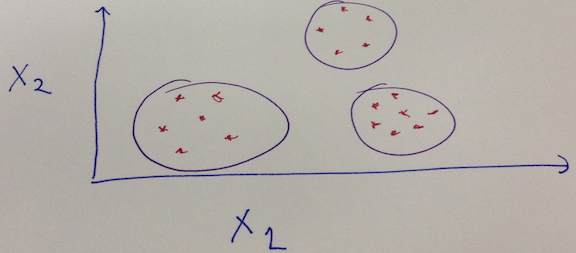 X2
X2